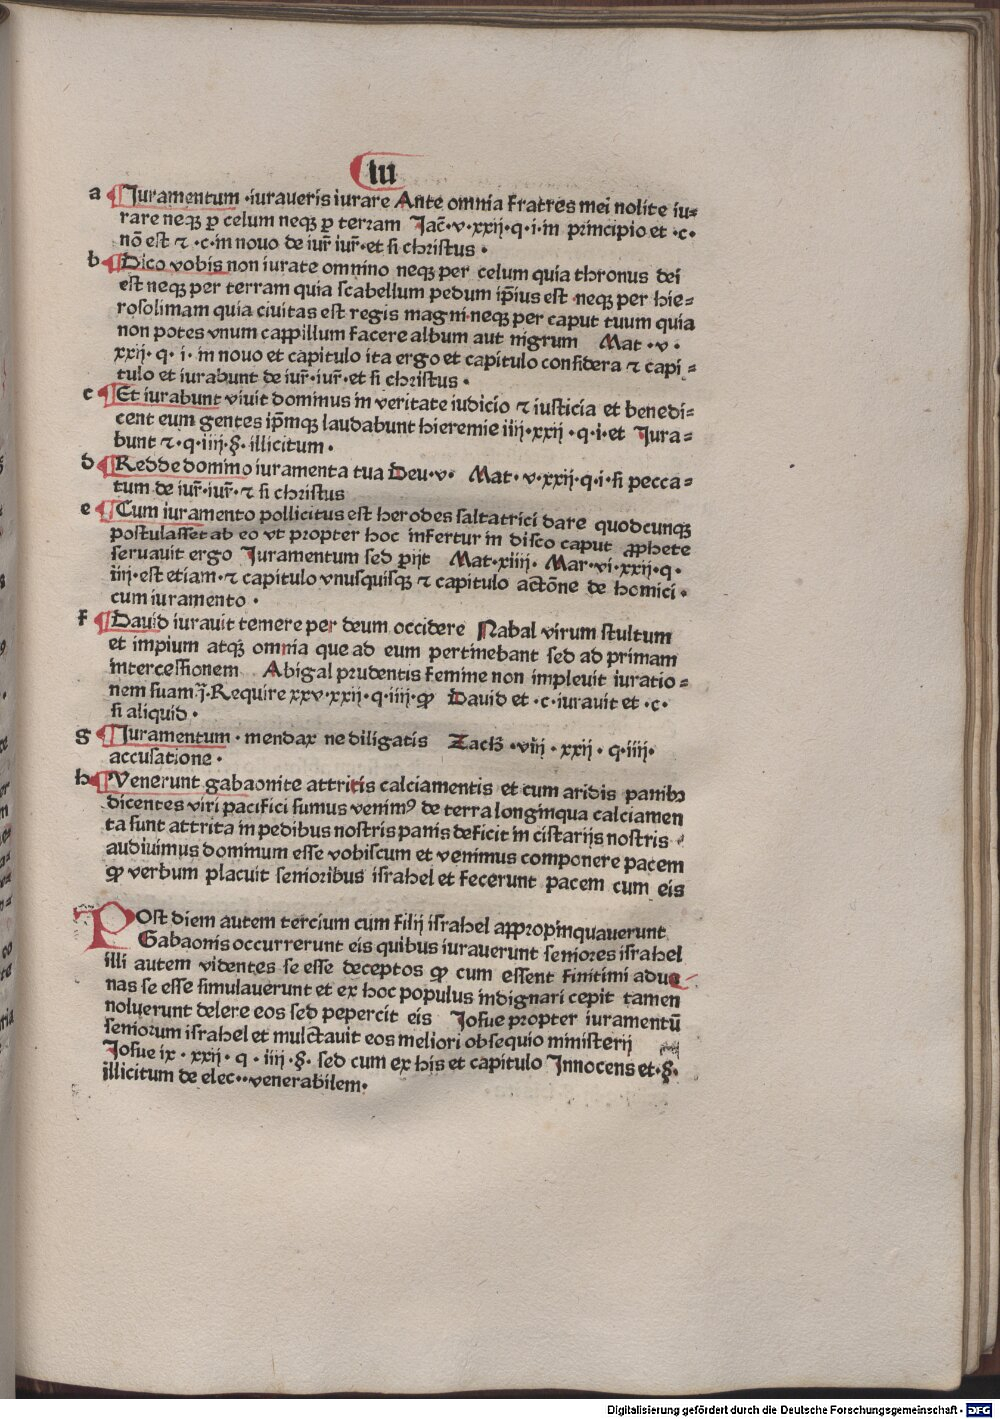 iu
a Iuramentum ·iuraueris iurare Ante omnia fratres mei nolite iu=
rare neqꝫ ꝑ celum neqꝫ ꝑ terram Jac̄·v·xxij·q·i·in principio et ·c·
nō est ⁊ ·c·in nouo de iur̄ iur̄·et si christus ·
b Dico vobis non iurate omnino neqꝫ per celum quia thronus dei
est neqꝫ per terram quia scabellum pedum ip̄ius est neqꝫ per hie=
rosolimam quia ciuitas est regis magni·neqꝫ per caput tuum quia
non potes vnum cappillum facere album aut nigrum Mat ·v·
xxij· q· i· in nouo et capitulo ita ergo et capitulo considera ⁊ capi=
tulo et iurabunt de iur̄·iur̄·et si christus ·
c Et iurabunt viuit dominus in veritate iudicio ⁊ iusticia et benedi=
cent eum gentes ip̄mqꝫ laudabunt hieremie iiij·xxij ·q·i·et Jura=
bunt ⁊·q·iiij·§·illicitum ·
d Redde domino iuramenta tua Deu·v· Mat·v·xxij·q·i·si pecca=
tum de iur̄·iur̄·⁊ si christus
e Cum iuramento pollicitus est herodes saltatrici dare quodcunqꝫ
postulasset ab eo vt propter hoc infertur in disco caput ꝓphete
seruauit ergo Juramentum sed ꝑijt Mat·xiiij· Mar·vi·xxij·q·
iiij·est etiam·⁊ capitulo vnusquisqꝫ ⁊ capitulo actōne de homici·
cum iuramento ·
f Dauid iurauit temere per deum occidere Nabal virum stultum
et impium atqꝫ omnia que ad eum pertinebant sed ad primam
intercessionem Abigal prudentis femine non impleuit iuratio=
nem suam·j̄·Require xxv·xxij·q·iiij·ꝙ Dauid et ·c·iurauit et ·c·
si aliquid ·
g Iuramentum · mendax ne diligatis Zach̄ ·viij ·xxij · q·iiij·
accusatione ·
h Venerunt gabaonite attritis calciamentis et cum aridis panibꝫ
dicentes viri pacifici sumus venimꝰ de terra longinqua calciamen
ta sunt attrita in pedibus nostris panis deficit in cistarijs nostris
audiuimus dominum esse vobiscum et venimus componere pacem
ꝙ verbum placuit senioribus israhel et fecerunt pacem cum eis
POst diem autem tercium cum filij israhel appropinquauerunt
Gabaonis occurrerunt eis quibus iurauerunt seniores israhel
illi autem videntes se esse deceptos ꝙ cum essent finitimi adue
nas se esse simulauerunt et ex hoc populus indignari cepit tamen
noluerunt delere eos sed pepercit eis Josue propter iuramentū
seniorum israhel et mulctauit eos meliori obsequio ministerij
Josue ix · xxij · q · iiij ·§· sed cum ex his et capitulo Innocens et·§·
illicitum de elec··venerabilem·
Digitalisierung gefördert durch die Deutsche Forschungsgemeinschaft · DFG